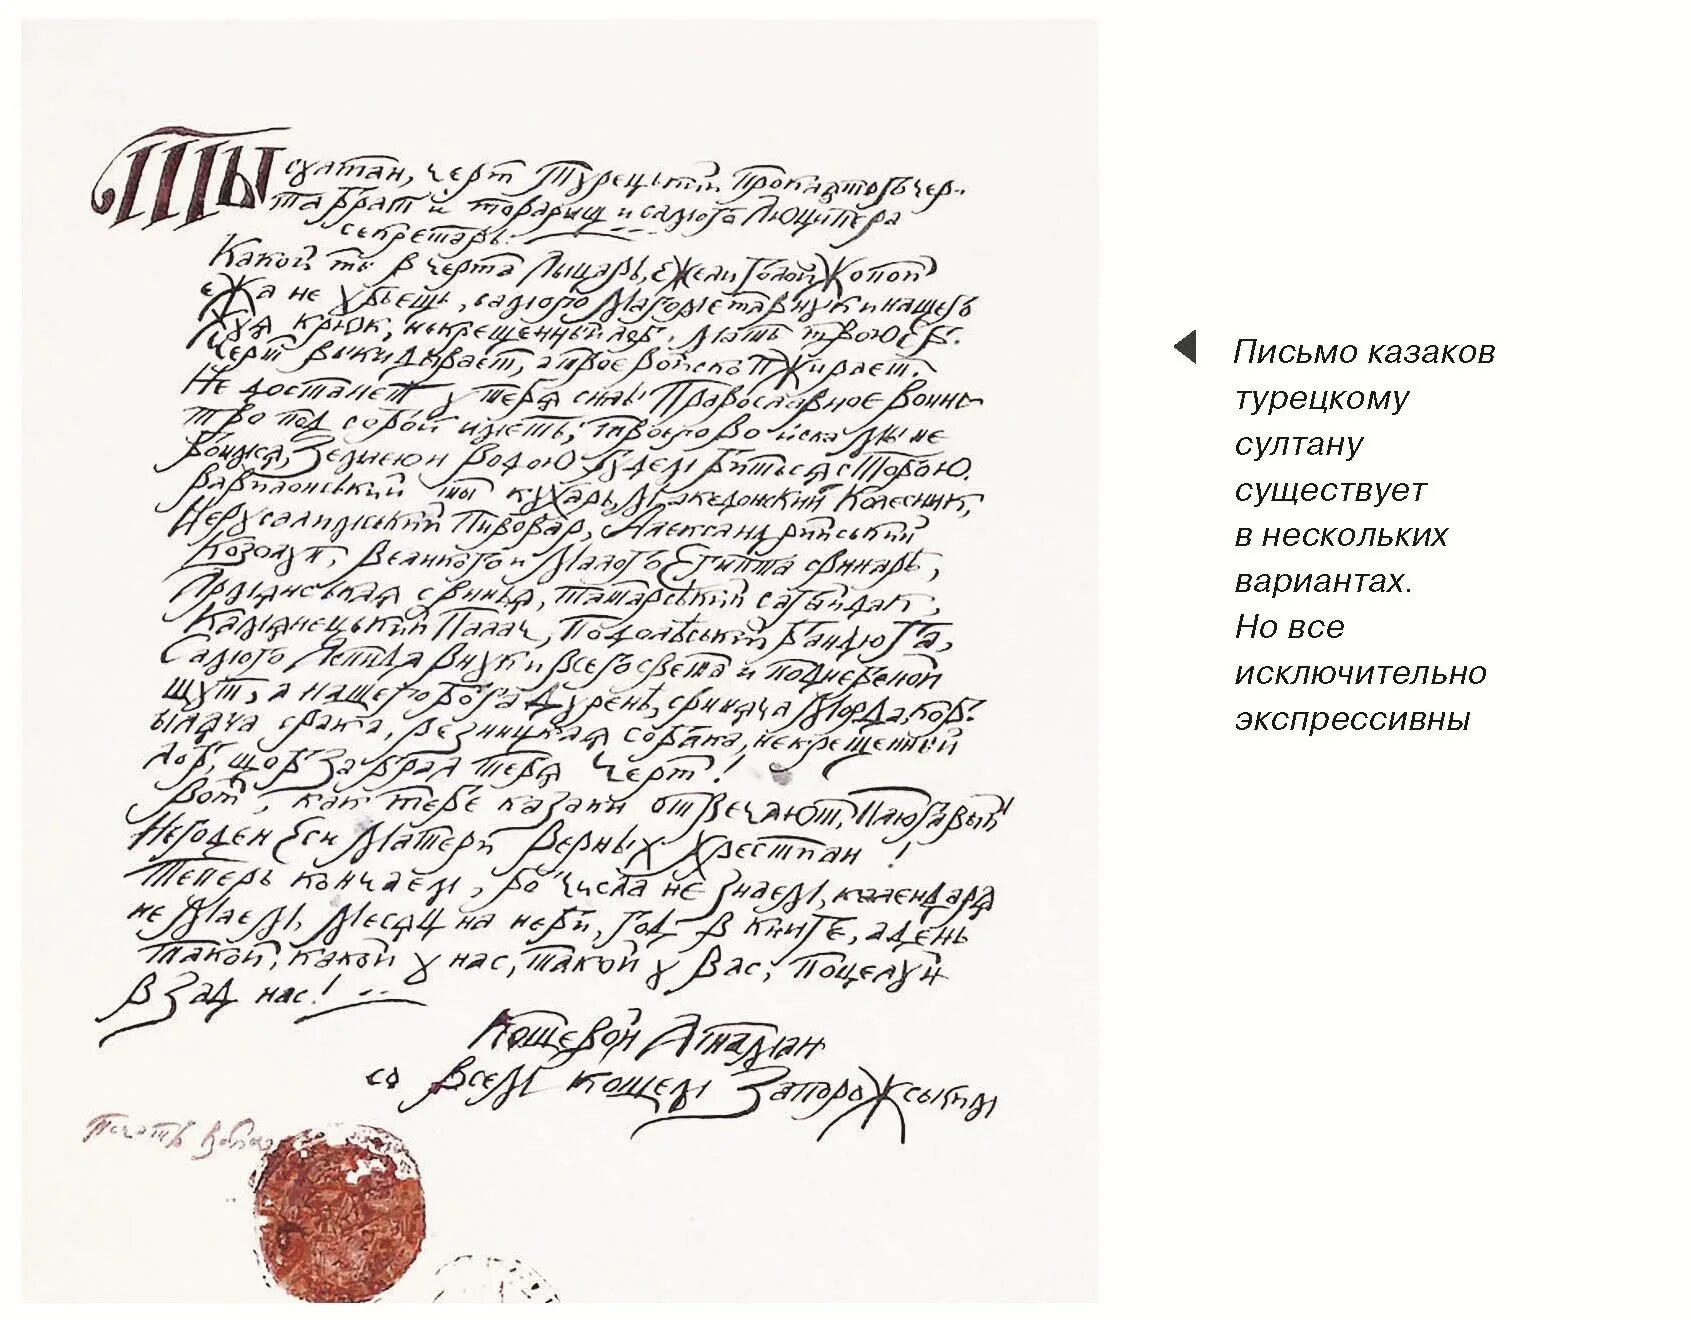 Ты султан, черт турецький, проклятого чер-
та брат и товарищ и самого Люципера
секретарь.
Какой ты в черта лыцарь, ежели голой жопой
ежа не убъещь, самого Магомета внук и нащего
хуя крюк, некрещенный лоб, мать твою еб.
Черт выкидывает, а твое войско пожирает.
Не достанет у тебя силы Православное воинь-
тво под собой иметь; твоего войска мы не
боимся, землею и водою будем биться с тобою.
Вавилонський ты кухарь, Македонский колесник,
Иерусалимський пивовар, Александрийський
козолуп, Великого и Малого Египта свинарь,
Армянськая свинья, татарський сагайдак,
Камянецький палач, Подольський бандюга,
Самого Аспида внук и всего света и подневской
шут, а нащего бога дурень, свиняча морда, коб-
ыляча срака, резницкая собака, некрещенный
лоб, щоб забрал тебя черт!
Вот, как тебе казаки отвечают, плюгавый!
Негоден еси матери верных хрестиан!
Теперь кончаем, бо числа не знаем, календаря
не маем, месяц на неби, год в книге, а день
такой, какой у нас, такой у вас, поцелуй
в зад нас!
Кощевой Атаман
со всем кощем Запорожським
Печать
Письмо казаков
турецкому
султану
существует
в нескольких
вариантах.
Но все
исключительно
экспрессивны